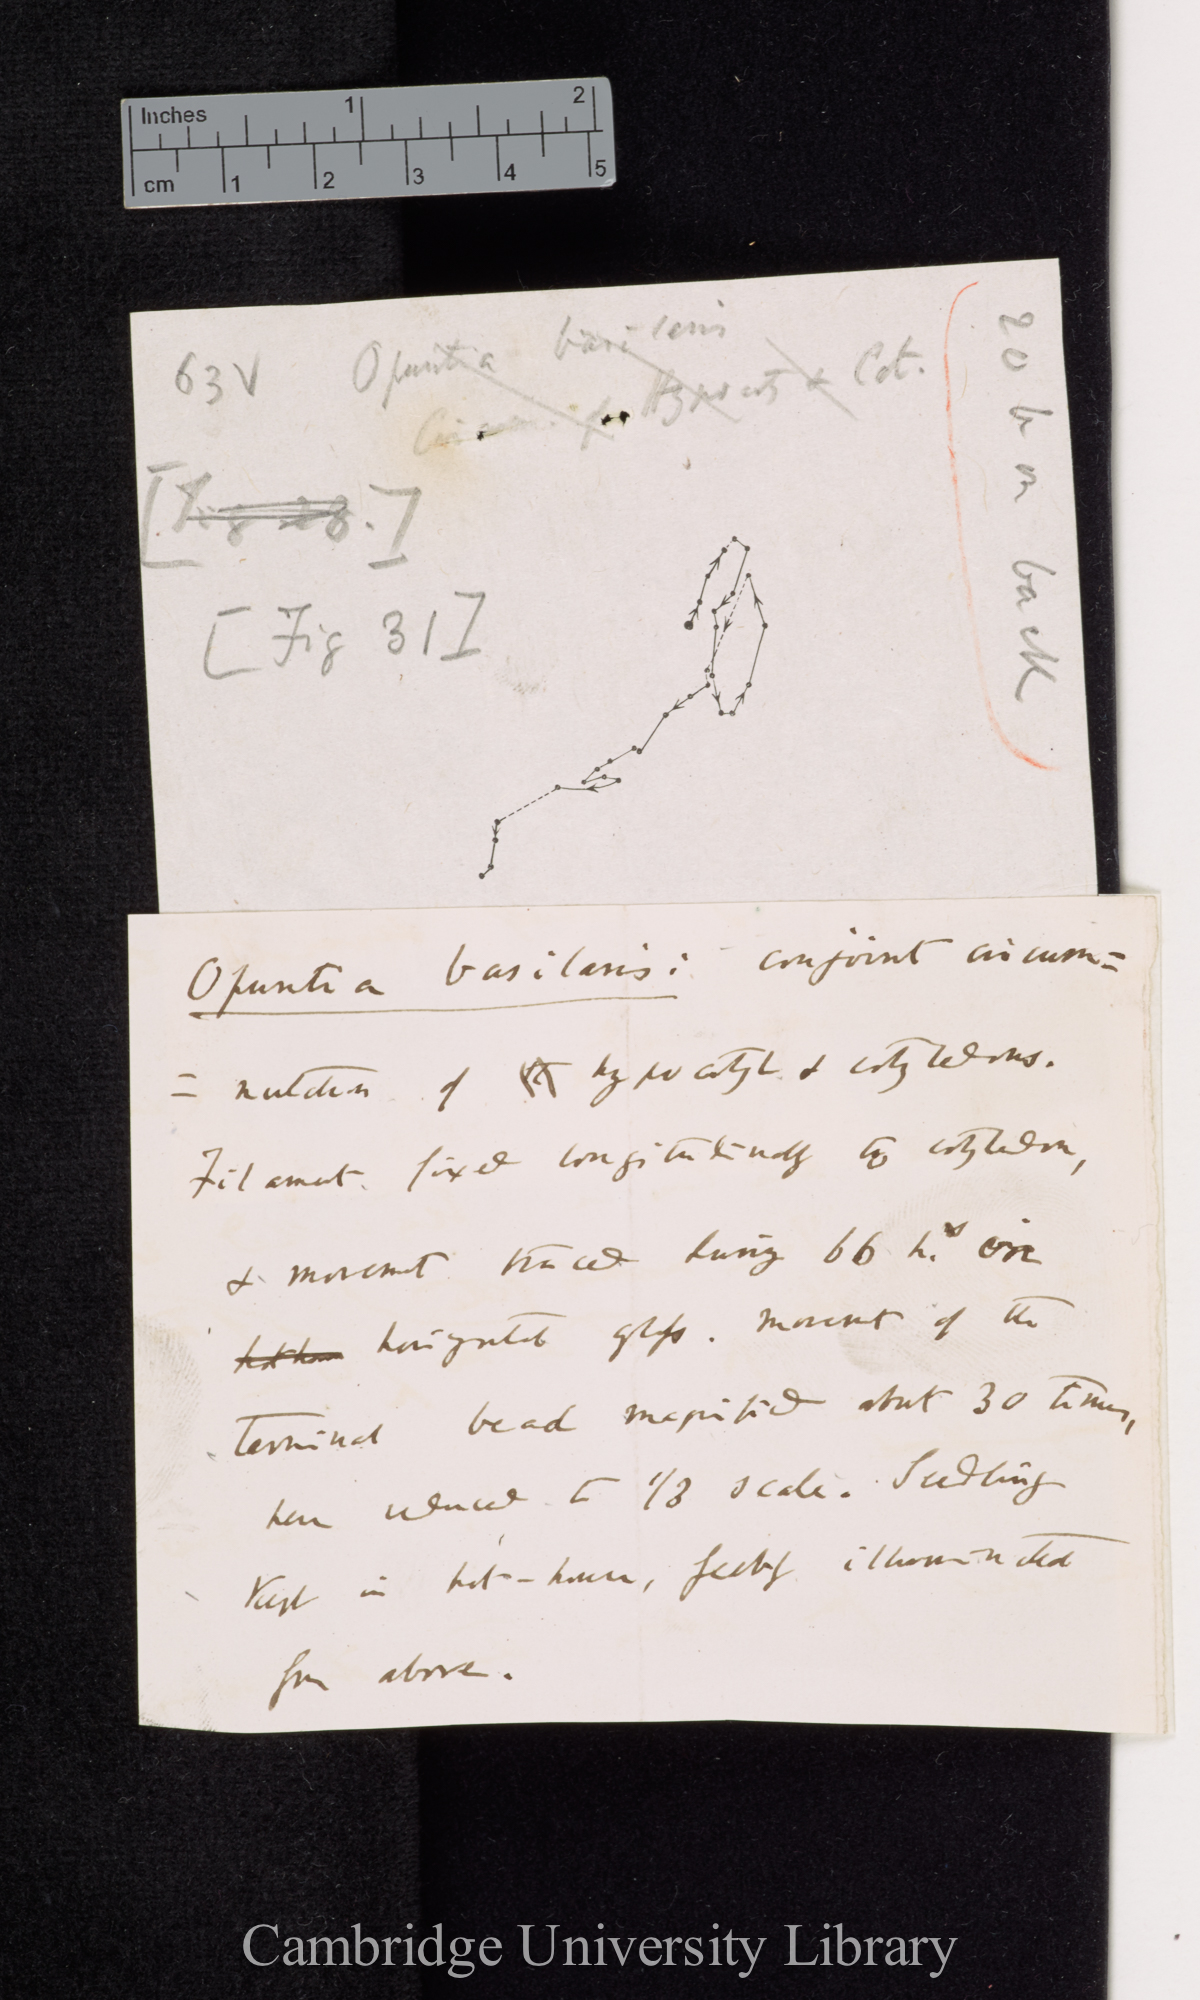 Inches 1 2
cm 1 2 3 4 5
63V Opuntia basilaris
Circum. of Hypocots & Cot.
[Fig .]
[Fig 31]
20 b on back
Opuntia basilaris: conjoint circum=
= nutation of hypocotyl & cotyledons.
Filament fixed longitudinally to cotyledon,
& movement traced during 66 h.s on
hot-house horizontal glass. Movement of the
terminal bead magnified about 30 times,
here reduced to 1/3 scale. Seedling
kept in hot-house, feebly illuminated
from above.
Cambridge University Library